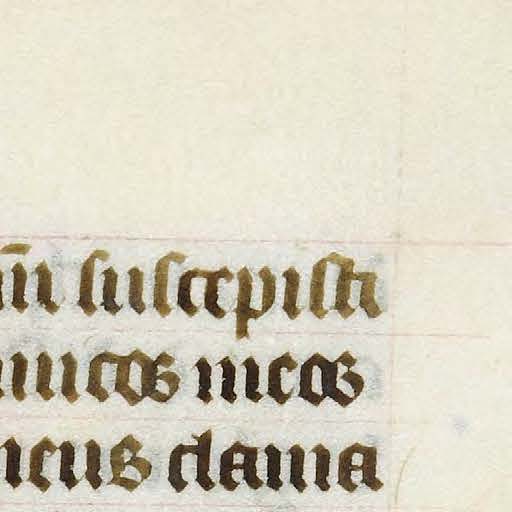 m̄ suscepisti
imicos meos
meus clama